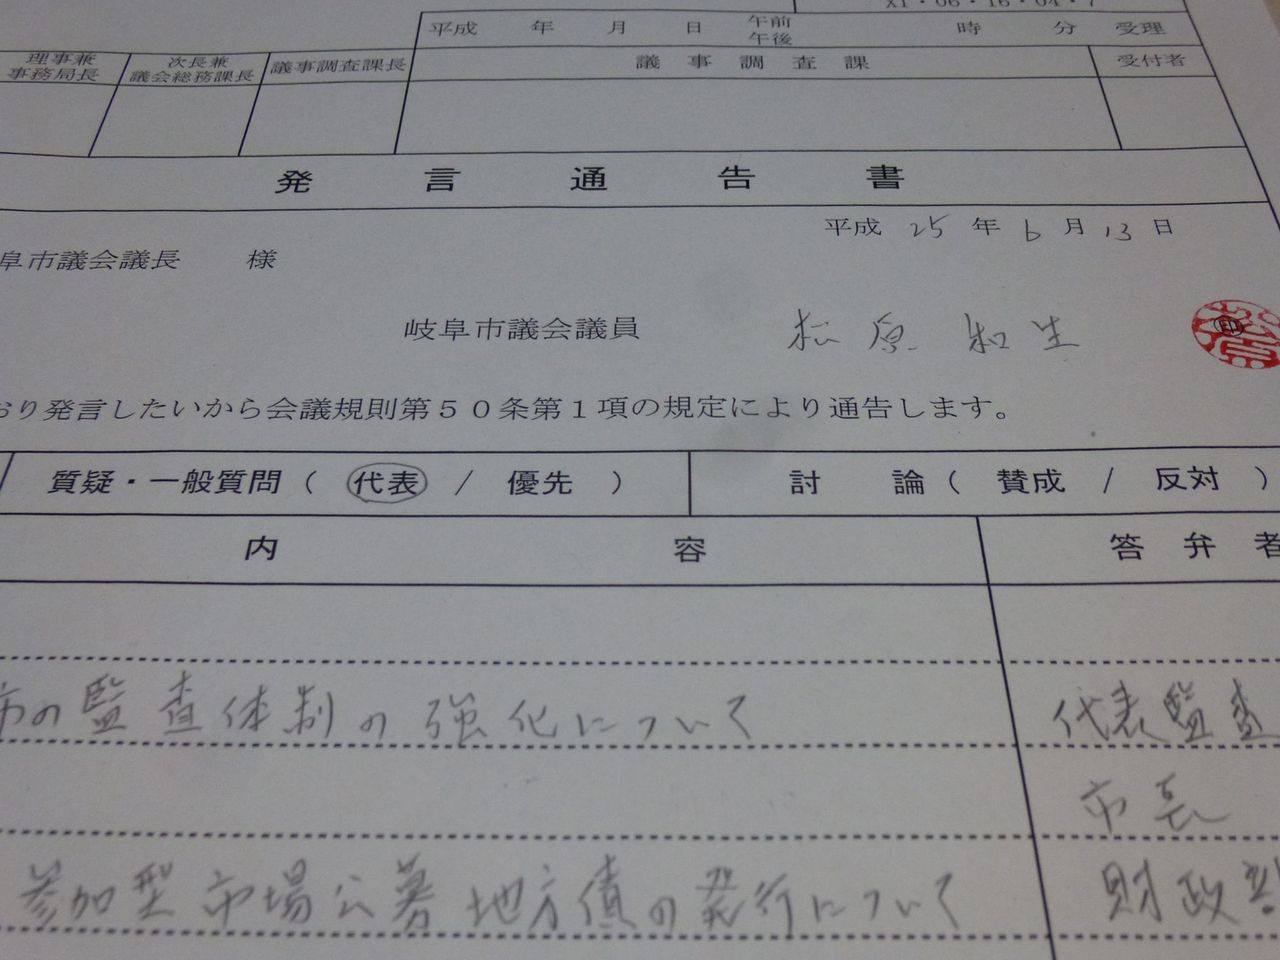 平成 年 月 日 午前 午後 時 分 受理
理事兼 事務局長 次長兼 議会総務課長 議事調査課長 議事調査課 受付者
発言通告書
平成 25 年 6 月 13 日
阜市議会議長 様
岐阜市議会議員 松原和生 印
おり発言したいから会議規則第50条第1項の規定により通告します。
質疑・一般質問（ 代表 / 優先 ） 討論（ 賛成 / 反対 ）
内容 答弁者
市の監査体制の強化について 代表監査
市長
参加型市場公募地方債の発行について 財政部